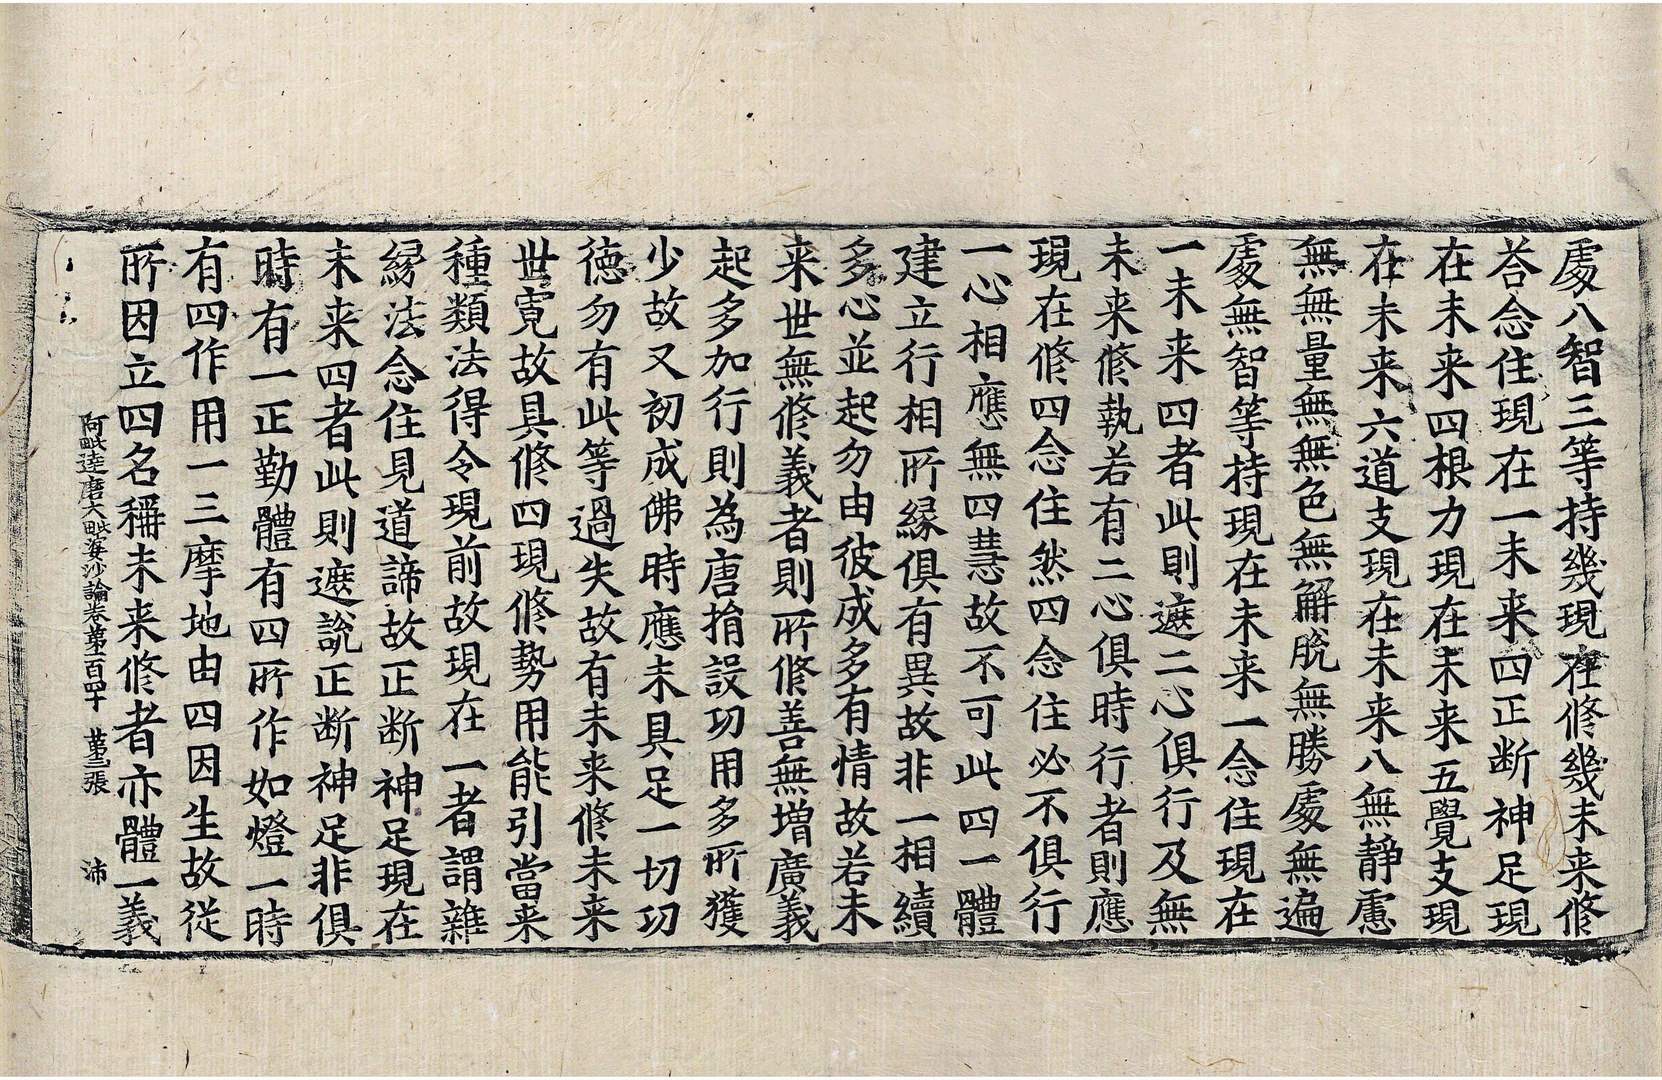 處八智三等持幾現在修幾未来修
荅念住現在一未来四正断神足現
在未来四根力現在未来五覺支現
在未来六道支現在未来八無靜慮
無無量無無色無解脫無勝處無遍
處無智等持現在未来一念住現在
一未来四者此則遮二心俱行及無
未来修執若有二心俱時行者則應
現在修四念住然四念住必不俱行
一心相應無四慧故不可此四一體
建立行相所緣俱有異故非一相續
多心並起勿由彼成多有情故若未
来世無修義者則所修善無增廣義
起多加行則為唐捐設功用多所獲
少故又初成佛時應未具足一切功
德勿有此等過失故有未来修未来
世寛故具修四現修勢用能引當来
種類法得令現前故現在一者謂雜
緣法念住見道諦故正断神足現在
未来四者此則遮說正断神足非俱
時有一正勤體有四所作如燈一時
有四作用一三摩地由四因生故從
所因立四名稱未来修者亦體一義
阿毗達磨大毗婆沙論卷第百四十　第三張　沛